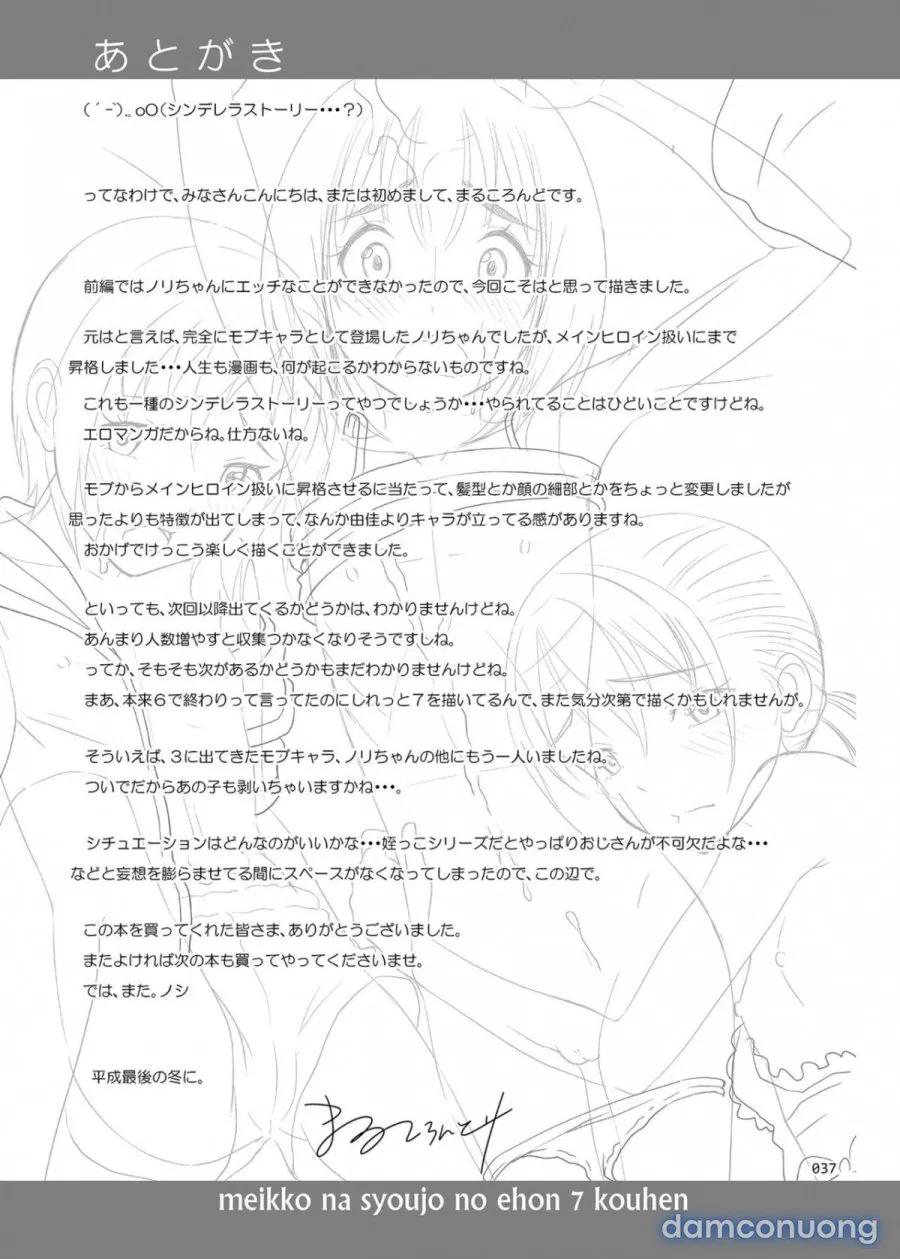 あとがき
( ´ -`)．。oO（シンデレラストーリー・・・？）
ってなわけで、みなさんこんにちは、または初めまして、まるころんどです。
前編ではノリちゃんにエッチなことができなかったので、今回こそはと思って描きました。
元はと言えば、完全にモブキャラとして登場したノリちゃんでしたが、メインヒロイン扱いにまで
昇格しました・・・人生も漫画も、何が起こるかわからないものですね。
これも一種のシンデレラストーリーってやつでしょうか・・・やられてることはひどいことですけどね。
エロマンガだからね。仕方ないね。
モブからメインヒロイン扱いに昇格させるに当たって、髪型とか顔の細部とかをちょっと変更しましたが
思ったよりも特徴が出てしまって、なんか由佳よりキャラが立ってる感がありますね。
おかげでけっこう楽しく描くことができました。
といっても、次回以降出てくるかどうかは、わかりませんけどね。
あんまり人数増やすと収集つかなくなりそうですしね。
ってか、そもそも次があるかどうかもまだわかりませんけどね。
まあ、本来６で終わりって言ってたのにしれっと７を描いてるんで、また気分次第で描くかもしれませんが。
そういえば、３に出てきたモブキャラ、ノリちゃんの他にもう一人いましたね。
ついでだからあの子も剥いちゃいますかね・・・。
シチュエーションはどんなのがいいかな・・・姪っこシリーズだとやっぱりおじさんが不可欠だよな・・・
などと妄想を膨らませてる間にスペースがなくなってしまったので、この辺で。
この本を買ってくれた皆さま、ありがとうございました。
またよければ次の本も買ってやってくださいませ。
では、また。ノシ
平成最後の冬に。
まるころんど
037
meikko na syoujo no ehon 7 kouhen
damconuong